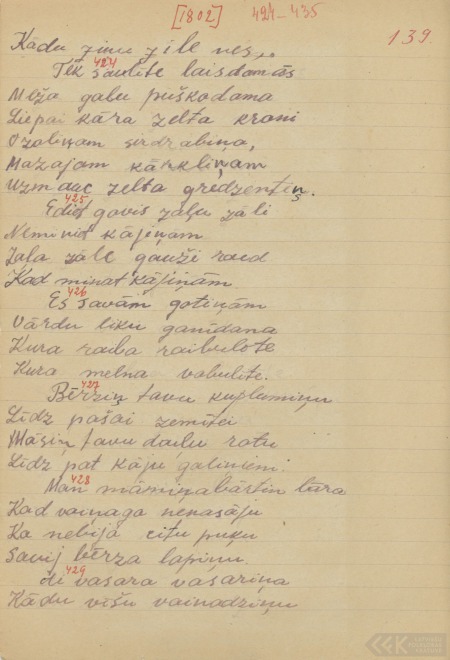 [1802] 424-435
139
Kādu ziņu zīle nes,..
424
Tek saulīte laizdamās
Meža galu puškodama
Liepai kāra zelta kroni
Ozoliņam sudrabiņa,
Mazajam kārkliņam
Uzmauc zelta gredzentiņ.
425
Ediet govis zaļu zāli
Neminiet kājiņam
Zala zāle gauži raud
Kad minat kājiņām
426
Es savām gotiņām
Vārdu liku ganīdana
Kura raiba raibulote
Kura melna vabulīte.
427
Bērziņ tavu kuplumiņu
Līdz pašai zemītei
Māsiņ tavu daiļu rotu
Līdz pat kāju galiņiem.
428
Man māmiņa bārtin bāra
Kad vaiņaga nenasāju
Ka nebija citu puķu
Savij bērza lapiņu.
429
Ai vasara vasariņa
Kādu vīšu vainadziņu